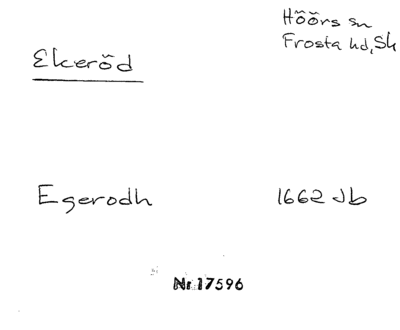 Höörs sn
Frosta hd, Sk
Ekeröd
Egerodh 1662 Jb
Nr 17596